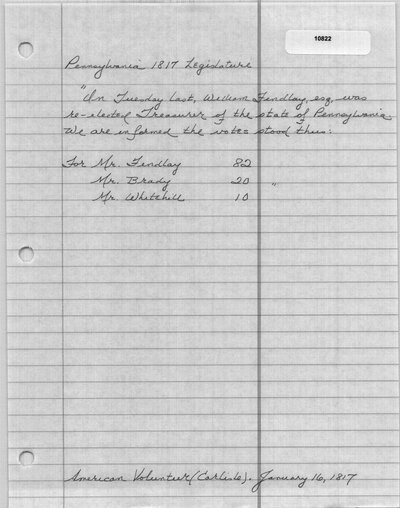 10822
Pennsylvania 1817 Legislature
"On Tuesday last, William Findlay, esq. was
re-elected Treasurer of the state of Pennsylvania.
We are informed the votes stood thus:
For Mr. Findlay 82
Mr. Brady 20 "
Mr. Whitehill 10
American Volunteer (Carlisle). January 16, 1817